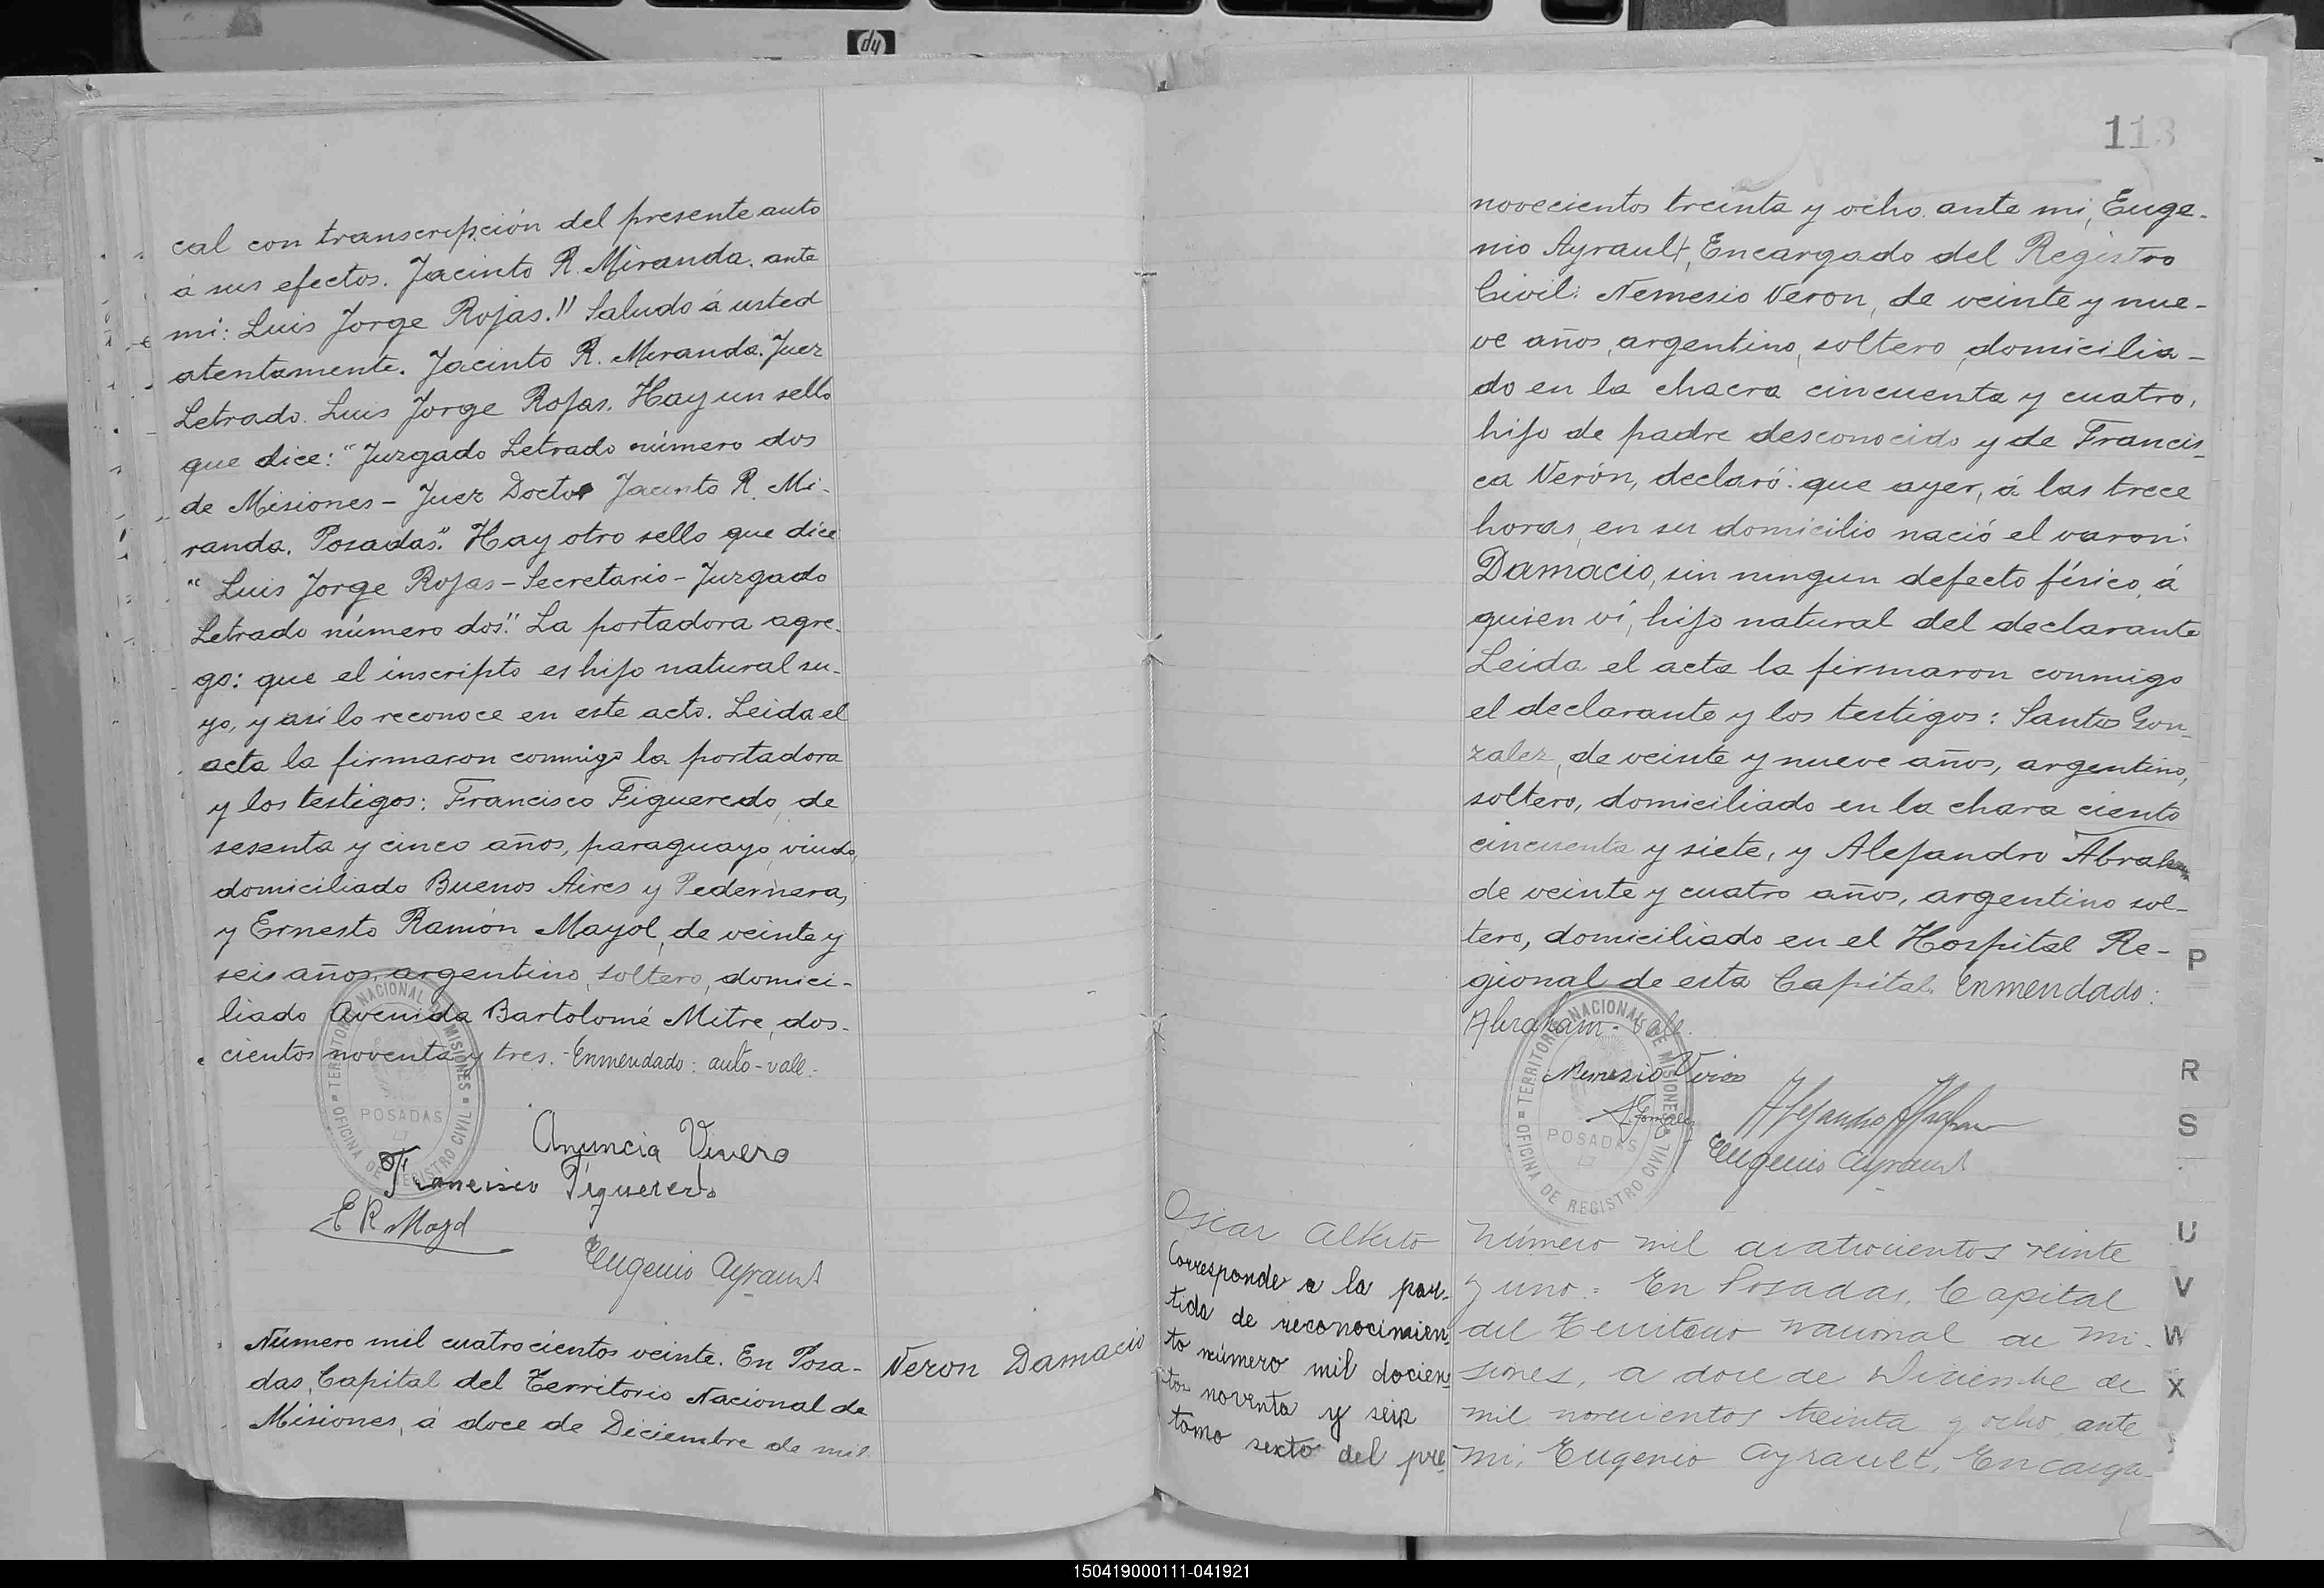 cal con transcripción del presente auto
á sus efectos. Jacinto R. Miranda. ante
mi: Luis Jorge Rojas." Saludo á usted
atentamente. Jacinto R. Miranda. Juez
Letrado. Luis Jorge Rojas. Hay un sello
que dice: "Juzgado Letrado número dos
de Misiones - Juez Doctor Jacinto R. Mi-
randa. Posadas." Hay otro sello que dice
" Luis Jorge Rojas - Secretario - Juzgado
Letrado número dos." La portadora agre-
gó: que el inscripto es hijo natural su-
yo, y asi lo reconoce en este acto. Leida el
acta la firmaron conmigo la portadora
y los testigos: Francisco Figueredo, de
sesenta y cinco años, paraguayo, viudo,
domiciliado Buenos Aires y Pedernera,
y Ernesto Ramón Mayol, de veinte y
seis años, argentino, soltero, domici-
liado Avenida Bartolomé Mitre, dos-
cientos noventa y tres. - Enmendado: auto - vale. -
TERRITORIO NACIONAL DE MISIONES
POSADAS
OFICINA DE REGISTRO CIVIL
Anuncia Vivero
Francisco Figueredo
E R Mayol
Eugenio Ayrault
Número mil cuatrocientos veinte. En Posa-
das, Capital del Territorio Nacional de
Misiones, á doce de Diciembre de mil
Veron Damacio
113
novecientos treinta y ocho, ante mi, Euge-
nio Ayrault, Encargado del Registro
Civil: Nemesio Veron, de veinte y nue-
ve años, argentino, soltero, domicilia-
do en la chacra cincuenta y cuatro,
hijo de padre desconocido y de Francis-
ca Verón, declaró: que ayer, á las trece
horas, en su domicilio nació el varon:
Damacio, sin ningun defecto físico, á
quien ví, hijo natural del declarante
Leida el acta la firmaron conmigo
el declarante y los testigos: Santos Gon-
zalez, de veinte y nueve años, argentino,
soltero, domiciliado en la chara ciento
cincuenta y siete, y Alejandro Abraham
de veinte y cuatro años, argentino sol-
tero, domiciliado en el Hospital Re-
gional de esta Capital. Enmendado:
Abraham - vale.
TERRITORIO NACIONAL DE MISIONES
POSADAS
OFICINA DE REGISTRO CIVIL
Nemesio Veron
S Gonzalez
Alejandro Abraham
Eugenio Ayrault
Oscar Alberto
Corresponde a la par-
tida de reconocimien-
to número mil docien-
tos noventa y seis
tomo sexto del pre-
Número mil cuatrocientos veinte
y uno = En Posadas, Capital
del Territorio Nacional de Mi-
siones, a doce de Diciembre de
mil novecientos treinta y ocho, ante
mi, Eugenio Ayrault, Encarga-
P
R
S
U
V
W
X
150419000111-041921